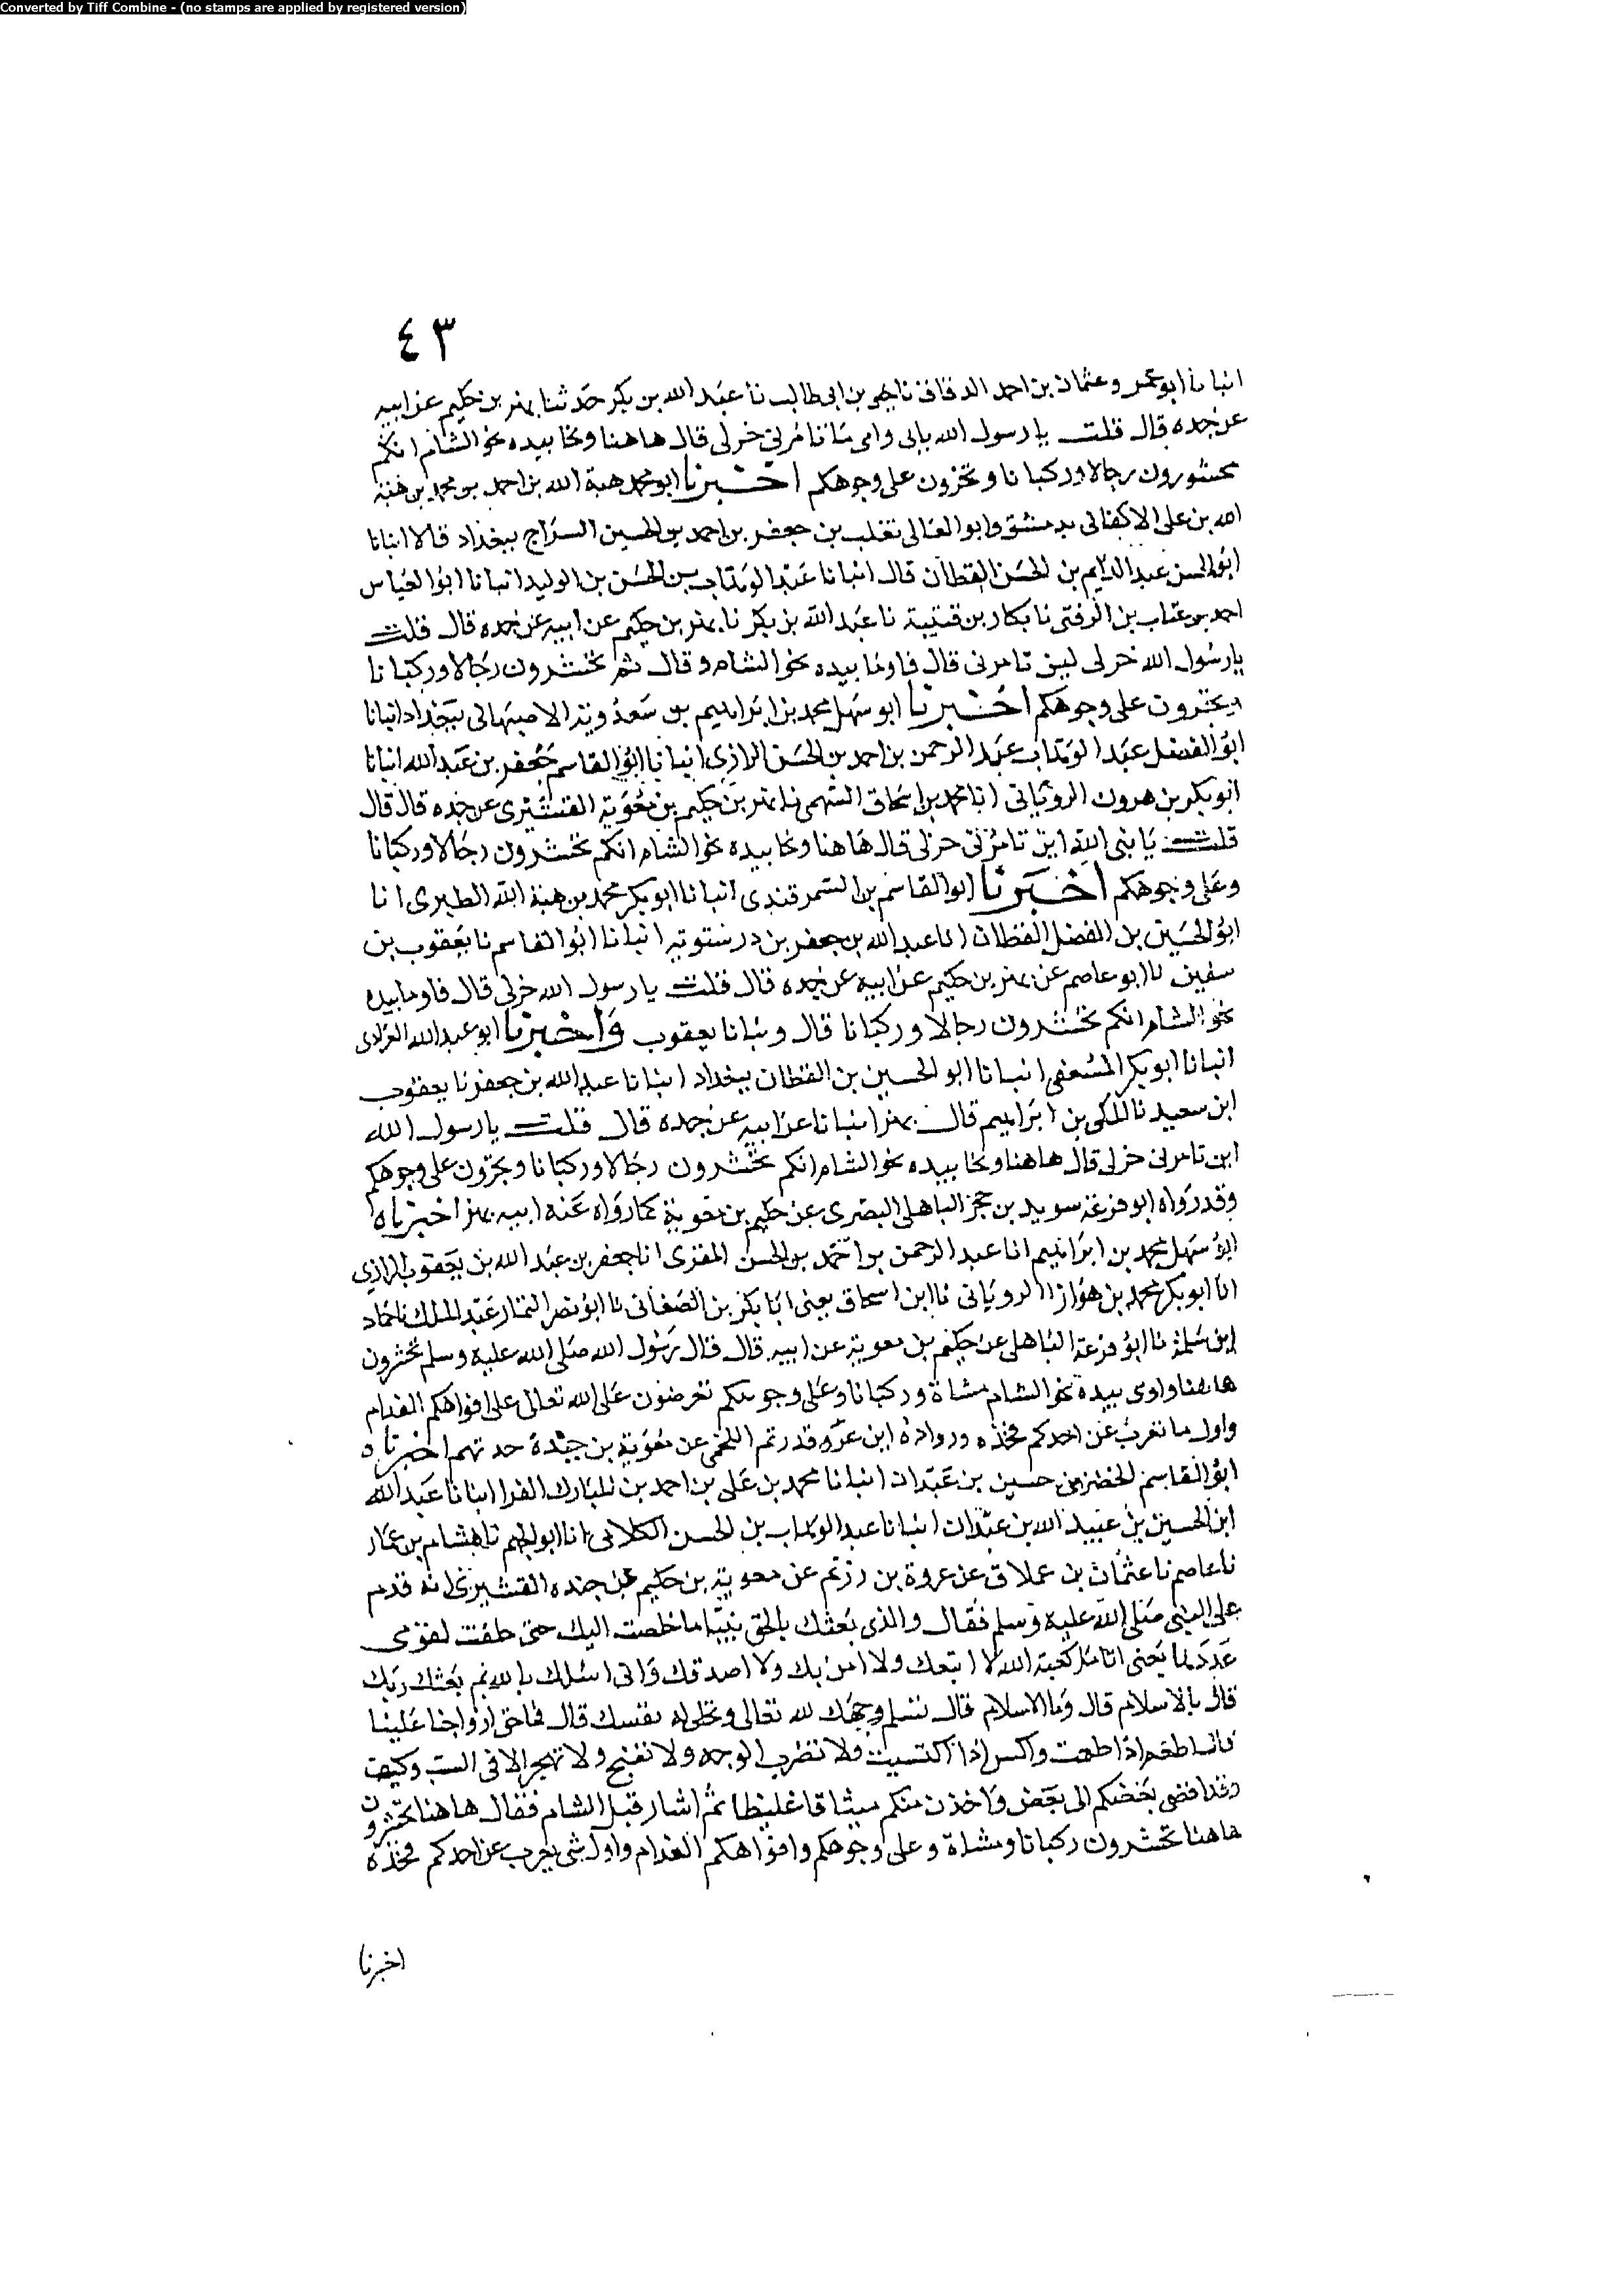 Converted by Tiff Combine - (no stamps are applied by registered version)
٤٣
انبانا ابو عمرو عثمان بن احمد الدقاق نا يحيى بن ابى طالب نا عبد الله بن بكر حدثنا بهز بن حكيم عن ابيه
عن جده قال قلت يا رسول الله بابى وامى ما تامرنى خر لى قال هاهنا ونحا بيده نحو الشام انكم
محشورون رجالا وركبانا وتجرون على وجوهكم اخبرنا ابو محمد هبة الله بن احمد بن محمد بن هبة
الله بن على الاكفانى بدمشق وابو المعالى تغلب بن جعفر بن احمد بن الحسين السراج ببغداد قالا انبانا
ابو الحسن عبد الدايم بن الحسن القطان قال انبانا عبد الوهاب بن الحسن بن الوليد انبانا ابو العباس
احمد بن عتاب بن الرفتى نا بكار بن قتيبة نا عبد الله بن بكر نا بهز بن حكيم عن ابيه عن جده قال قلت
يا رسول الله خر لى اين تامرنى قال فاوما بيده نحو الشام وقال ثم تحشرون رجالا وركبانا
ويجرون على وجوهكم اخبرنا ابو سهل محمد بن ابراهيم بن سعدويه الاصبهانى ببغداد انبانا
ابو الفضل عبد الوهاب عبد الرحمن بن احمد بن الحسن الرازى انبانا ابو القاسم جعفر بن عبد الله انبانا
ابو بكر بن هرون الرويانى انا محمد بن اسحاق السهمى نا بهز بن حكيم بن معوية القشيرى عن جده قال قال
قلت يا نبى الله اين تامرنى خر لى قال هاهنا ونحا بيده نحو الشام انكم تحشرون رجالا وركبانا
وعلى وجوهكم اخبرنا ابو القاسم بن السمرقندى انبانا ابو بكر محمد بن هبة الله الطبرى انا
ابو الحسين بن الفضل القطان انا عبد الله بن جعفر بن درستويه انبانا ابو القاسم نا يعقوب بن
سفين نا ابو عاصم عن بهز بن حكيم عن ابيه عن جده قال قلت يا رسول الله خر لى قال فاوما بيده
نحو الشام انكم تحشرون رجالا وركبانا قال ونبانا يعقوب واخبرنا ابو عبد الله الفراوى
انبانا ابو بكر انبانا ابو الحسين بن القطان ببغداد انبانا عبد الله بن جعفر نا يعقوب
ابن سعيد نا المكى بن ابراهيم قال بهز انبانا عن ابيه عن جده قال قلت يا رسول الله
اين تامرنى خر لى قال هاهنا ونحا بيده نحو الشام انكم تحشرون رجالا وركبانا وتجرون على وجوهكم
وقد رواه ابو قزعة سويد بن حجر الباهلى البصرى عن حكيم بن معوية كما رواه عنه ابيه بهز اخبرناه
ابو سهل محمد بن ابراهيم انا عبد الرحمن بن احمد بن الحسن المقرى انا جعفر بن عبد الله بن يعقوب الرازى
انا ابو بكر محمد بن هرون الرويانى نا ابن اسحاق يعنى ابا بكر بن الصغانى نا ابو نصر التمار عبد الملك نا حماد
ابن سلمة نا ابو قزعة الباهلى عن حكيم بن معوية عن ابيه قال قال رسول الله صلى الله عليه وسلم تحشرون
هاهنا واوى بيده نحو الشام مشاة وركبانا وعلى وجوهكم تعرضون على الله تعالى على افواهكم الفدام
واول ما تعرب عن احدكم فخذه ورواه ابن عروة رتم اللخمى عن معوية بن حيدة حد تهم اخبرناه
ابو القاسم الخضر بن حسين بن عبدان انبانا محمد بن على بن احمد بن المبارك الفرا انبانا عبد الله
ابن الحسين بن عبيد الله بن عبدان انبانا عبد الوهاب بن الحسن الكلابى انا ابو الجهم نا هشام بن عمار
نا عاصم نا عثمان بن علاق عن عروة بن رزيم عن معوية بن حكيم عن جده القشيرى انه قدم
على النبى صلى الله عليه وسلم فقال والذى بعثك بالحق نبيا ما خلصت اليك حتى حلفت لقومى
عددها يعنى انامل كفيه الله لا اتبعك ولا امن بك ولا اصدقك وانى اسلك بالله بم بعثك ربك
قال بالاسلام قال وما الاسلام قال تسلم وجهك لله تعالى وتخلى له نفسك قال فما حق ازواجنا علينا
قال اطعم اذا طعمت واكس اذا اكتسيت ولا تضرب الوجه ولا تقبح ولا تهجر الا فى البيت وكيف
وقد افضى بعضكم الى بعض واخذن منكم ميثاقا غليظا ثم اشار قبل الشام فقال هاهنا تحشرون
هاهنا تحشرون ركبانا ومشاة وعلى وجوهكم وافواهكم الفدام واول شى يعرب عن احدكم فخذه
اخبرنا